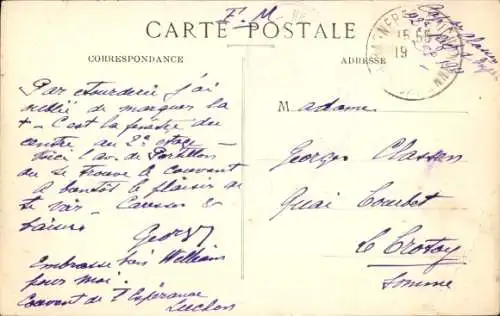 F. M.
CARTE POSTALE
CORRESPONDANCE
ADRESSE
Par étourderie j'ai
oublié de marquer la
+ - C'est la fenêtre du
centre au 2e étage -
Voici l'av. de Portillon
où se trouve le couvent
A bientôt le plaisir de
te voir - Caresses et
baisers
Embrasse bien William
pour moi.
Couvent de l'Espérance
Luchon
Madame
Georges Classen
Quai Courbet
Le Crotoy
Somme